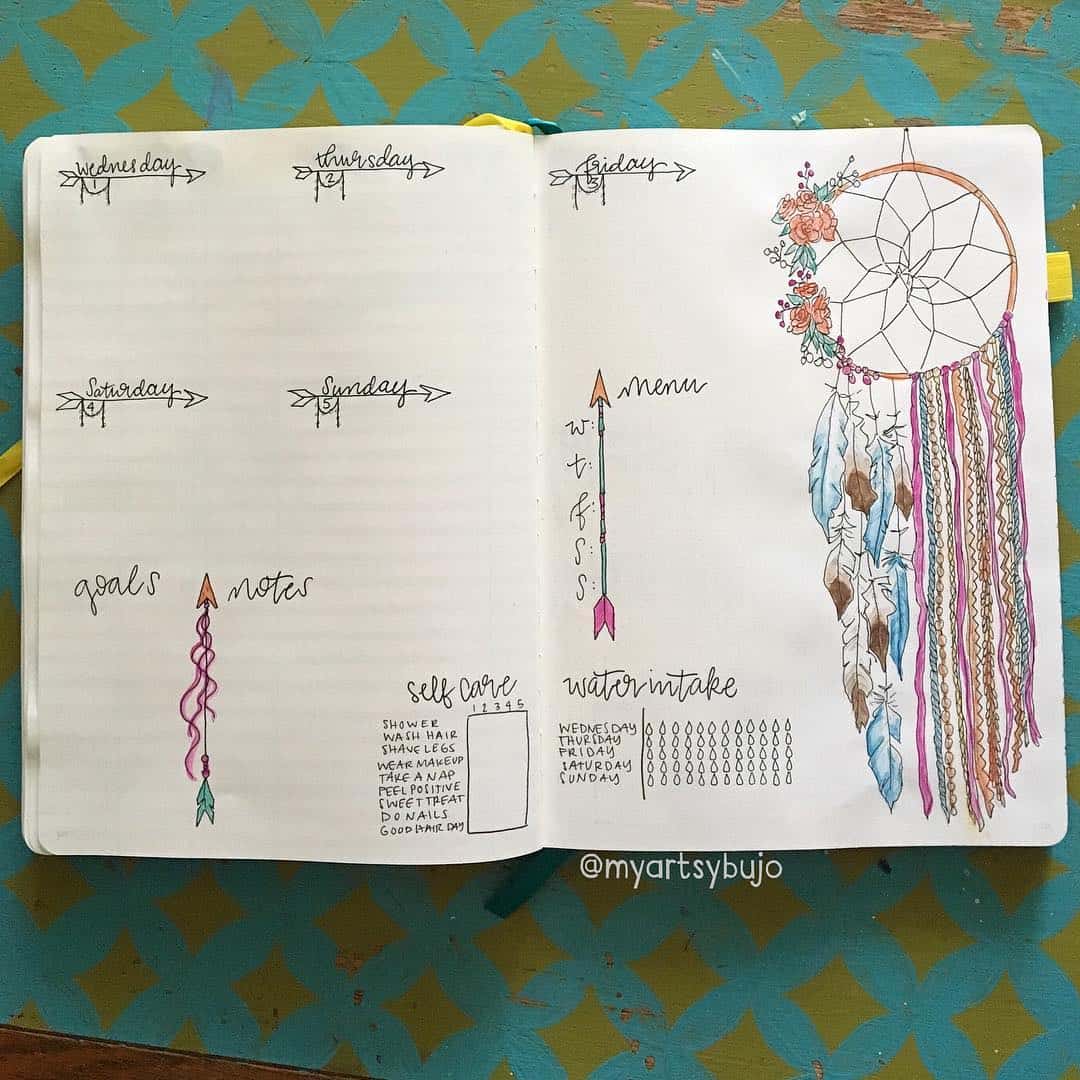 wednesday
1
thursday
2
Saturday
4
Sunday
5
goals
notes
self care
1 2 3 4 5
SHOWER
WASH HAIR
SHAVE LEGS
WEAR MAKEUP
TAKE A NAP
FEEL POSITIVE
SWEET TREAT
DO NAILS
GOOD HAIR DAY
friday
3
menu
w:
t:
f:
s:
s:
water intake
WEDNESDAY
THURSDAY
FRIDAY
SATURDAY
SUNDAY
@myartsybujo